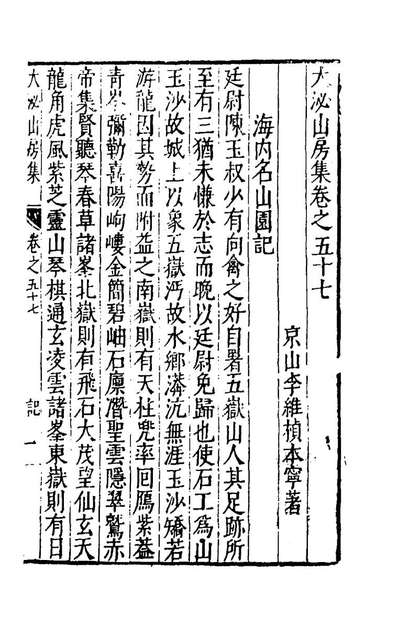 大泌山房集卷之五十七
京山李維楨本寧著
海內名山園記
廷尉陳玉叔少有向禽之好自署五嶽山人其足跡所
至有三猶未慊於志而晚以廷尉免歸也使石工爲山
玉沙故城上以象五嶽沔故水鄉漭沆無涯玉沙矯若
游龍因其勢而附益之南嶽則有天柱兜率回鴈紫蓋
青岑彌勒喜陽岣嶁金簡碧岫石廩潛聖雲隱翠鷲赤
帝集賢聽琴春草諸峯北嶽則有飛石大茂望仙玄天
龍角虎風紫芝靈山琴棋通玄凌雲諸峯東嶽則有日
大泌山房集 卷之五十七 記 一